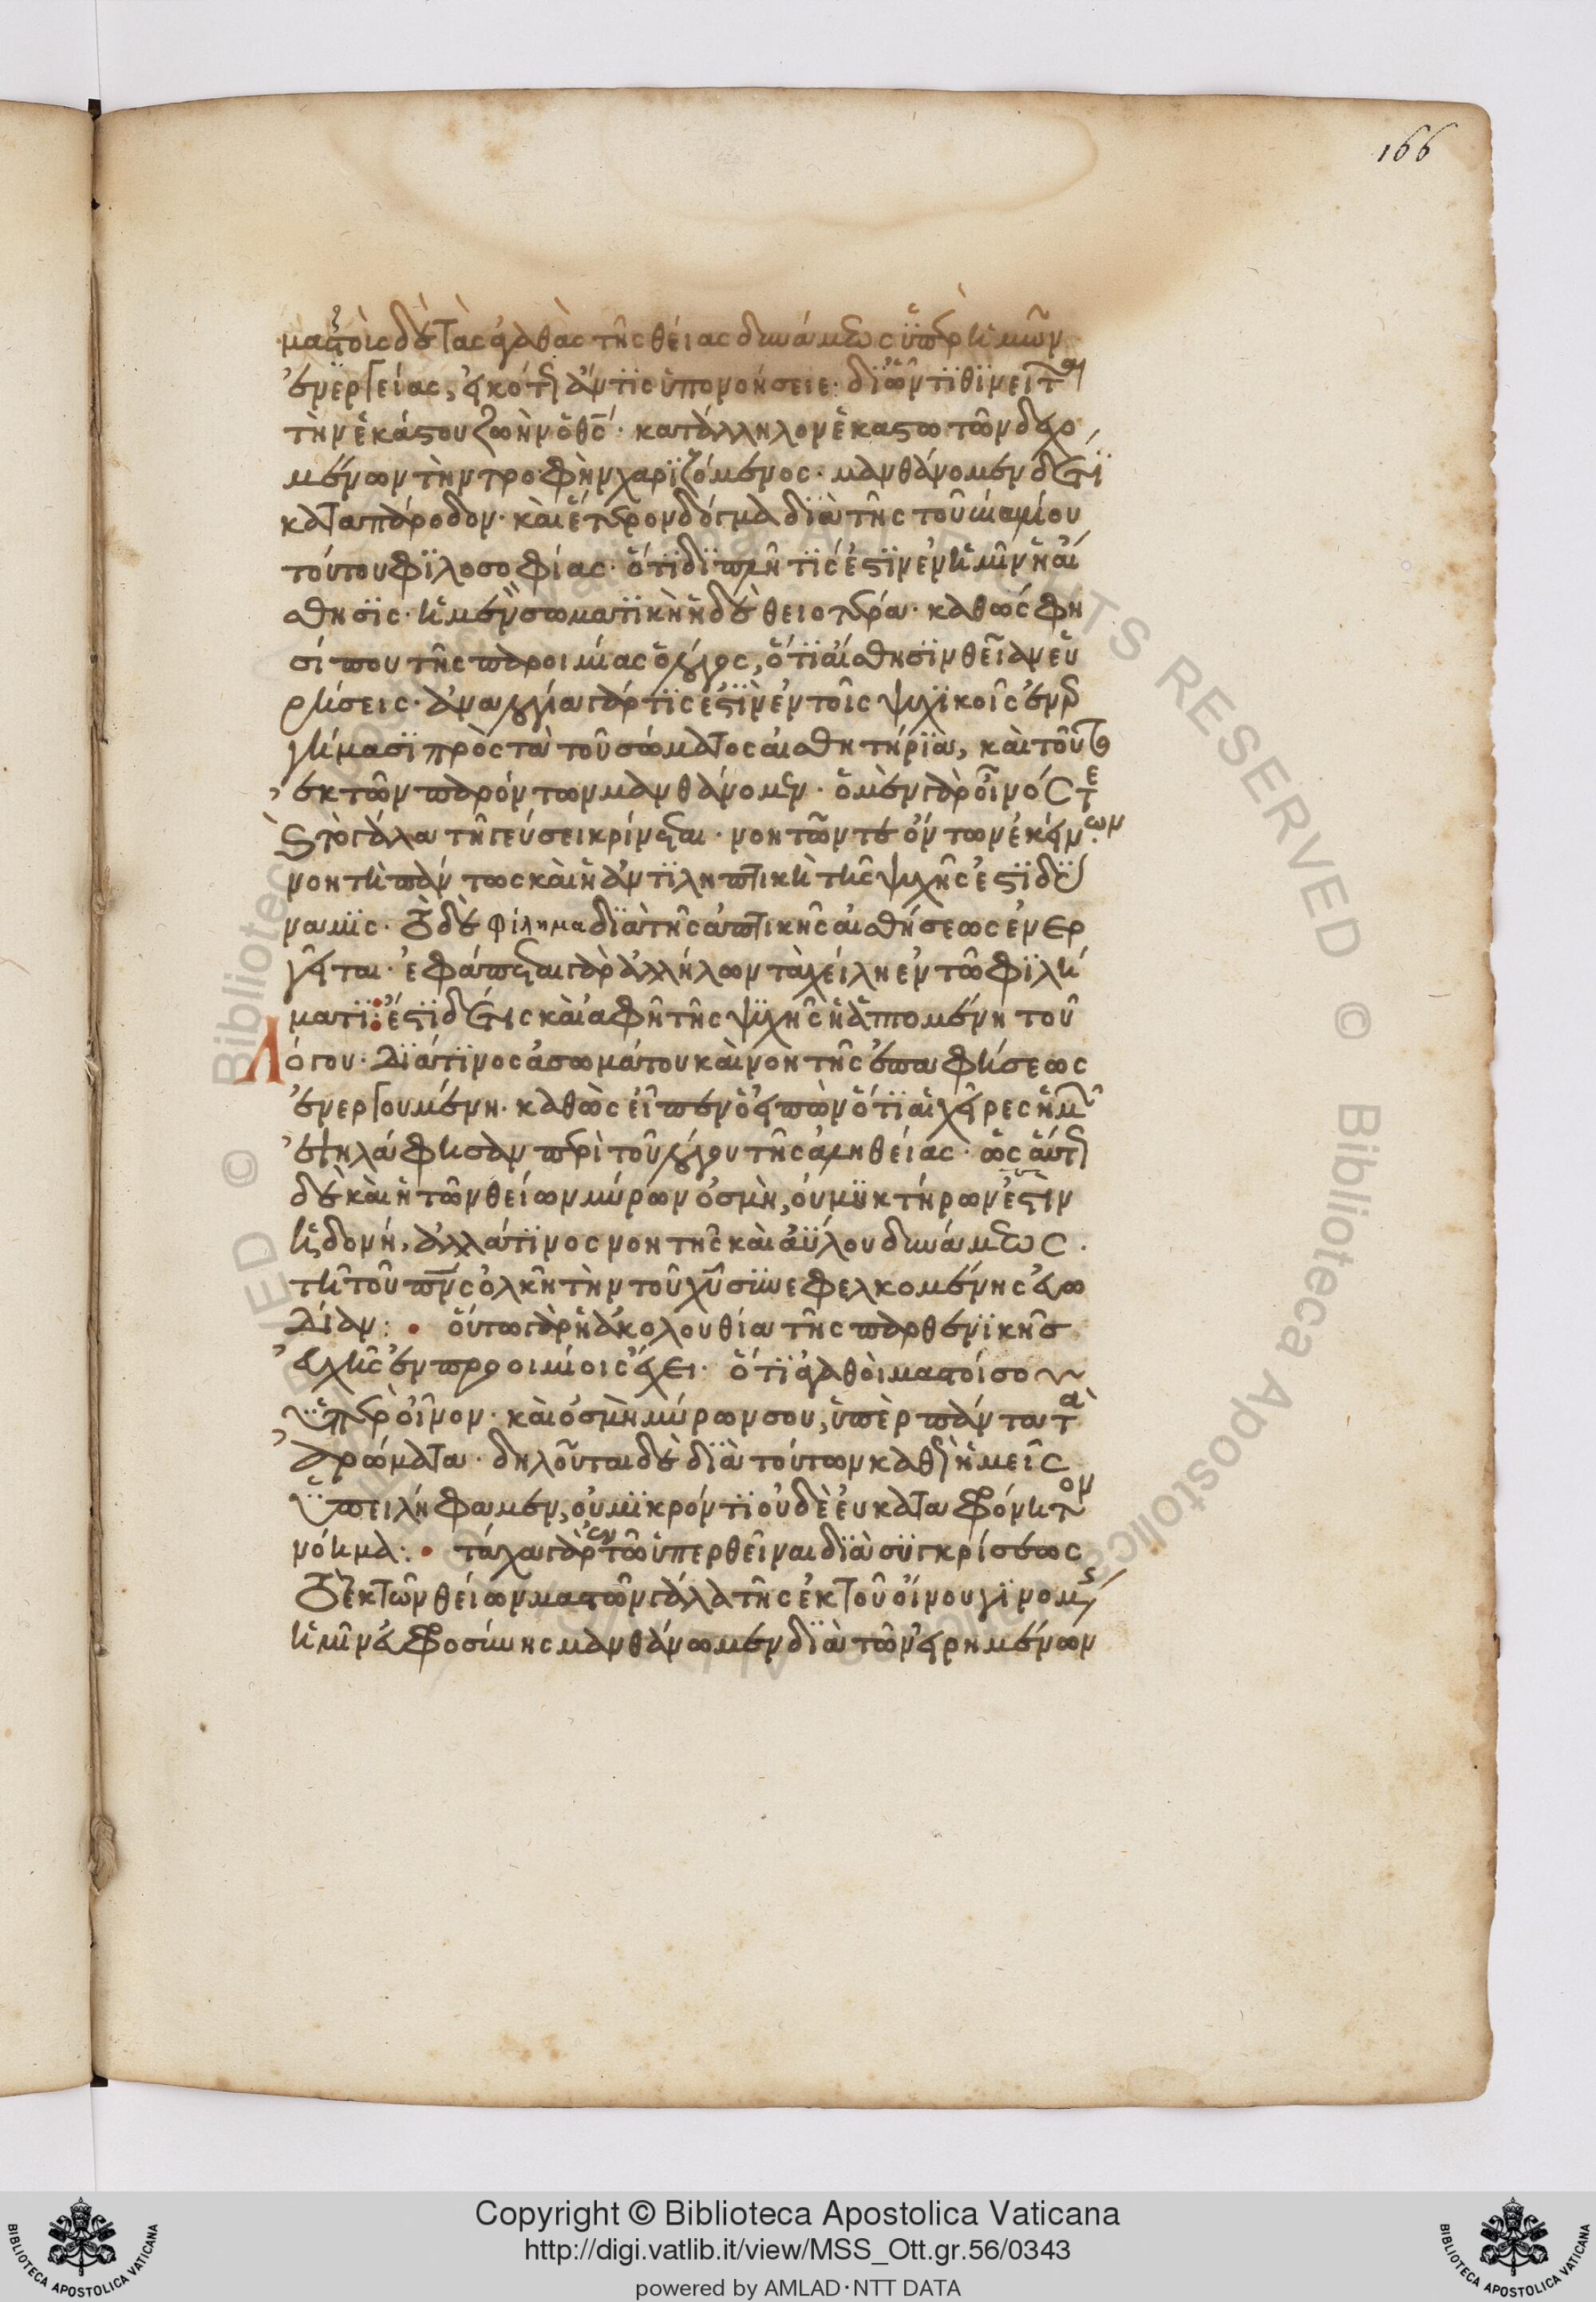 166
μαζοὺς δὲ τὰς ἀγαθὰς τῆς θείας δυνάμεως ὑπὲρ ἡμῶν
ἐνεργείας, εἰκότως ἄν τις ὑπονοήσειε· δι' ὧν τιθηνεῖται
τὴν ἑκάστου ζωὴν ὁ θς· κατάλληλον ἑκάστω τῶν δεχο
μένων τὴν τροφὴν χαριζόμενος· μανθάνομεν δέ τι
κατὰ πάροδον· καὶ ἕτερον δόγμα διὰ τῆς τοῦ
τούτου φιλοσοφίας· ὅτι διπλῆ τίς ἐστιν ἐν ἡμῖν ἡ αἴ
σθησις· ἡ μὲν σωματικὴ ἡ δὲ θειοτέρα· καθώς φη
σί που τῆς παροιμίας ὁ λόγος, ὅτι αἴσθησιν θείαν εὑ
ρήσεις· ἀναλογία γάρ τις ἐστὶν ἐν τοῖς ψυχικοῖς ἐνερ
γήμασι πρὸς τὰ τοῦ σώματος αἰσθητήρια, καὶ τοῦτο
ἐκ τῶν παρόντων μανθάνομεν· ὁ μὲν γὰρ οἶνός τε
καὶ τὸ γάλα τῇ γεύσει κρίνεται· νοητῶν τε ὄντων ἐκείνων
νοητὴ πάντως καὶ ἡ ἀντιληπτικὴ τῆς ψυχῆς ἐστι δύ
ναμις· τὸ δὲ φίλημα διὰ τῆς ἁπτικῆς αἰσθήσεως ἐνερ
γεῖται· ἐφάπτεται γὰρ ἀλλήλων τὰ χείλη ἐν τῶ φιλή
ματι: ἔστι δέ τις καὶ ἁφὴ τῆς ψυχῆς ἡ ἁπτομένη τοῦ
Λόγου· διά τινος ἀσωμάτου καὶ νοητῆς ἐπαφήσεως
ἐνεργουμένη· καθὼς εἶπεν ὁ εἰπὼν ὅτι αἱ χεῖρες ἡμῶν
ἐψηλάφησαν περὶ τοῦ λόγου τῆς ἀληθείας· ὡσαύτως
δὲ καὶ ἡ τῶν θείων μύρων ὀσμὴ, οὐ μυκτήρων ἐστὶν
ἡδονή, ἀλλά τινος νοητῆς καὶ ἀΰλου δυνάμεως.
τῆ τοῦ πνς ὁλκῆ τὴν τοῦ χυ συνεφελκομένης εὐω
δίαν: • οὕτω γὰρ ἡ ἀκολουθία τῆς παρθενικῆς
εὐχῆς ἐν προοιμίοις ἔχει· ὅτι ἀγαθοὶ μαστοί σου
ὑπὲρ οἶνον· καὶ ὀσμὴ μύρων σου, ὑπὲρ πάντα τὰ
ἀρώματα· δηλοῦται δὲ διὰ τούτων καθὼς ἡμεῖς
ὑπειλήφαμεν, οὐ μικρόν τι οὐδὲ εὐκαταφρόνητον
νόημα: • τάχα γὰρ ἐν τῶ ὑπερθεῖναι διὰ συγκρίσεως
τὸ ἐκ τῶν θείων μαστῶν γάλα τῆς ἐκ τοῦ οἴνου γινομένης
ἡμῖν εὐφροσύνης μανθάνωμεν διὰ τῶν εἰρημένων
Copyright © Biblioteca Apostolica Vaticana
http://digi.vatlib.it/view/MSS_Ott.gr.56/0343
powered by AMLAD·NTT DATA
BIBLIOTECA APOSTOLICA VATICANA
BIBLIOTECA APOSTOLICA VATICANA